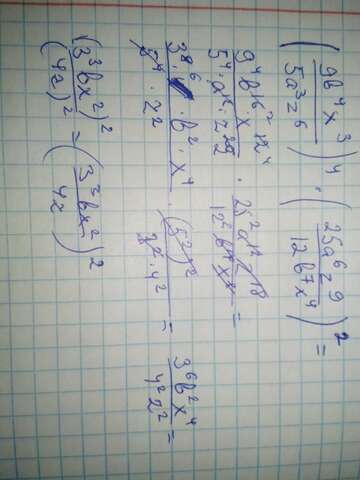 (9b⁴x³ / 5a³z⁶)⁴ · (25a⁶z⁹ / 12b⁷x⁴)² =
9⁴b¹⁶x¹² / 5⁴ · a¹² · z · 25²a¹²z¹⁸ / 12²b x =
3⁶ · b² · x⁴ / 5⁴ · z² · (5²)² / 3² · 4² = 3⁶b²x⁴ / 4²z² =
(3³bx²)² / (4z)² = (3³bx² / 4z)²